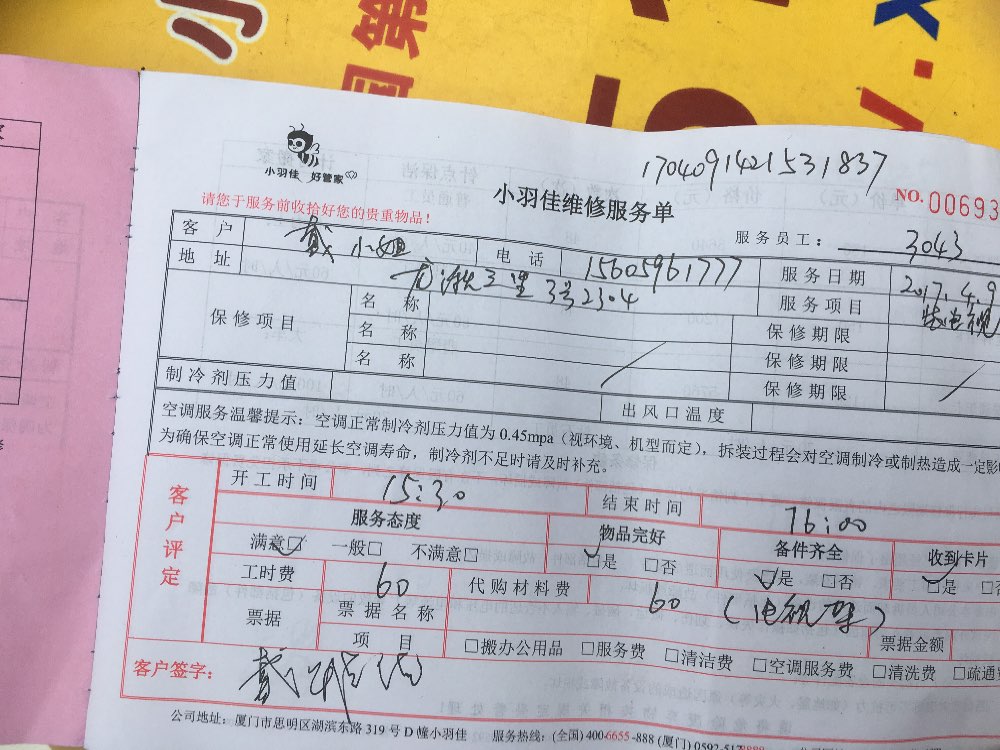 国第
1704091421531837
小羽佳 好管家
小羽佳维修服务单
NO. 00693
请您于服务前收拾好您的贵重物品！
服务员工： 3043
客 户 戴小姐 电 话 15605961777 服务日期 2017.4.9
地 址 3号2304 服务项目 装电视
保修项目 名 称 保修期限
名 称 保修期限
名 称 保修期限
制冷剂压力值 出风口温度
空调服务温馨提示：空调正常制冷剂压力值为 0.45mpa（视环境、机型而定），拆装过程会对空调制冷或制热造成一定影
为确保空调正常使用延长空调寿命，制冷剂不足时请及时补充。
客户评定
开工时间 15:30 结束时间 16:00
服务态度 物品完好 备件齐全 收到卡片
满意□ 一般□ 不满意□ □是 □否 □是 □否 □是 □否
工时费 60 代购材料费 60（电视架）
票据 票据名称 票据金额
项 目 □搬办公用品 □服务费 □清洁费 □空调服务费 □清洗费 □疏通
客户签字：
公司地址：厦门市思明区湖滨东路 319 号 D 幢小羽佳 服务热线：(全国) 400-6655-888 (厦门) 0592-517